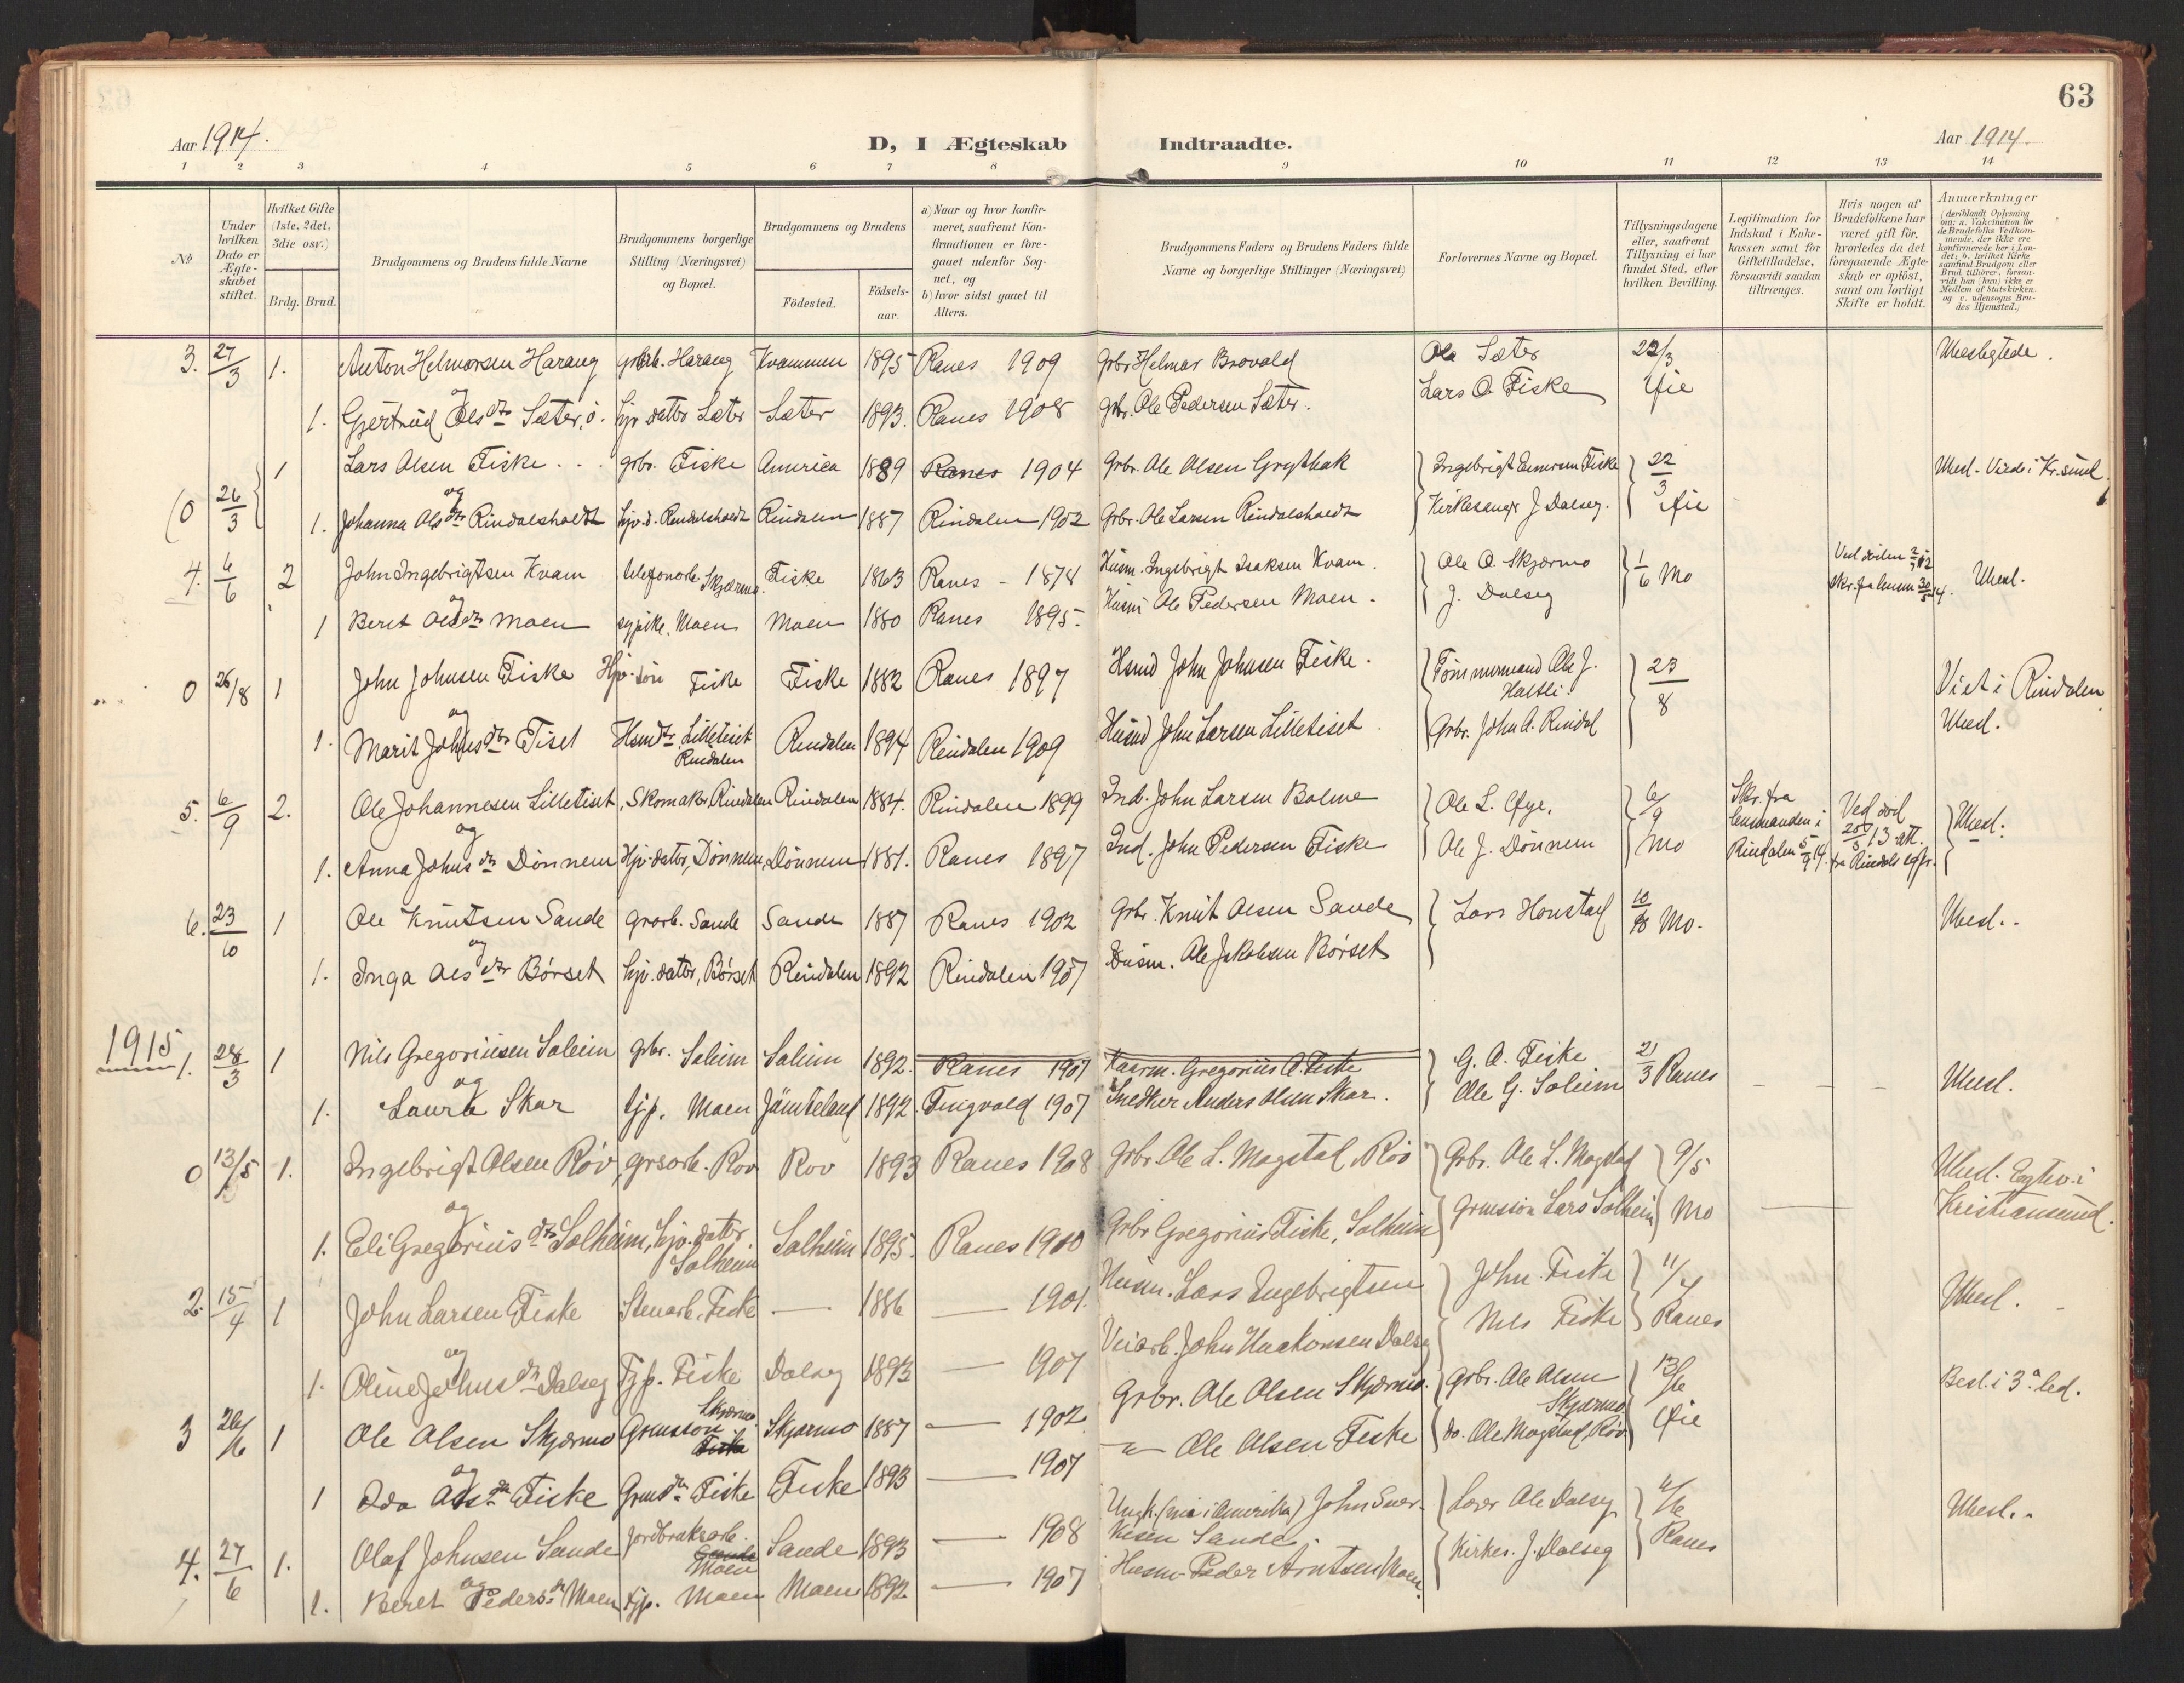 63
Aar 1914.
D, I Ægteskab Indtraadte.
Aar 1914.
1 2 3 4 5 6 7 8 9 10 11 12 13 14
No
Under hvilken Dato er Ægteskabet stiftet.
Hvilket Gifte (1ste, 2det, 3die osv.)
Brdg. Brud.
Brudgommens og Brudens fulde Navne
Brudgommens borgerlige Stilling (Næringsvei) og Bopæl.
Brudgommens og Brudens
Födested.
Födselsaar.
a) Naar og hvor konfirmeret, saafremt Konfirmationen er foregaaet udenfor Sognet, og
b) hvor sidst gaaet til Alters.
Brudgommens Faders og Brudens Faders fulde Navne og borgerlige Stillinger (Næringsvei)
Forlovernes Navne og Bopæl.
Tillysningsdagene eller, saafremt Tillysning ei har fundet Sted, efter hvilken Bevilling.
Legitimation for Indskud i Enkekassen samt for Giftetilladelse, forsaavidt saadan tiltrænges.
Hvis nogen af Brudefolkene har været gift för, hvorledes da det foregaaende Ægteskab er oplöst, samt om lovligt Skifte er holdt.
Anmærkninger (deriblandt Oplysning om: a. Vakcination for de Brudefolks Vedkommende, der ikke ere konfirmerede her i Landet; b. hvilket Kirkesamfund Brudgom eller Brud tilhörer, forsaavidt han (hun) ikke er Medlem af Statskirken, og c. udensogns Brudes Hjemsted.)
3. 27/3 1. Anton Helmersen Harang Harang Kvammen 1895 Ranes 1909 Grbr. Helmer Brovold Ole Sæter 22/3 Ubeslægtede.
og
1. Gjertrud Olsdtr Sæter, ö. hjv. datter Sæter Sæter 1893. Ranes 1908 grbr. Ole Pedersen Sæter. Lars O. Fiske Øie
(0 26/3 1 Lars Olsen Fiske grbr. Fiske America 1889 Ranes 1904 Grbr. Ole Olsen Grytbak Ingebrigt Fiske 22/3 Ubesl. Viede i Kr.sund
og
1. Johanna Olsdtr Rindalsholdt hjv. d. Rindalsholdt Rindalen 1887 Rindalen 1902 Grbr. Ole Larsen Rindalsholdt Kirkesanger J. Dalseg. Øie
4. 6/6 2 John Ingebrigtsen Kvam telefonarb. Skjærmo. Fiske 1863 Ranes - 1878 Husm. Ingebrigt Isaksen Kvam. Ole O. Skjærmo 1/6 Mo Ved døden Ubesl.
og
1 Beret Olsdtr Moen sypike. Moen Moen 1880 Ranes 1895. Husm. Ole Pedersen Moen. J. Dalseg
0 26/8 1 John Johnsen Fiske Hjv. sön Fiske Fiske 1882 Ranes 1897 Hsmd John Johnsen Fiske. Tömmermand Ole J. Haltli. 23/8 Viet i Rindalen
og
1. Marit Johnsdtr Tiset Hsmdtr Lilletiset Rindalen Rindalen 1894 Rindalen 1909 Husmd John Larsen Lilletiset Grbr. John A. Rindal Ubesl.
5. 6/9 2. Ole Johannesen Lilletiset, Skomaker, Rindalen Rindalen 1884. Rindalen 1899 Ind. John Larsen Bolme Ole L. Øye, 6/9 Skr. fra lensmanden i Rindalen 5/9 14. Ved död 20/5 13 att. fra Rindals Ubesl.
og
1. Anna Johnsdtr Dönnem Hjv. datter, Dönnem, Dönnem 1881. Ranes 1897 Ind. John Pedersen Fiske Ole J. Dönnem Mo
6. 23/10 1 Ole Knutsen Sande grarb. Sande Sande 1887 Ranes 1902 Grbr. Knut Olsen Sande Lars Honstad 10/10 Mo. Ubesl.
og
1. Inga Olsdtr Börset hjv. datter, Börset Rindalen 1892 Rindalen 1907 Husm. Ole Jakobsen Börset
1915
1. 28/3 1 Nils Gregoriusen Soleim grbr. Soleim Soleim 1892. Ranes 1907 Gregorius O. Fiske G. O. Fiske 21/3 Ranes Ubesl.
og
1. Laura Skar tjp. Moen Jämteland 1892. Tingvold 1907 Snedker Anders Olsen Skar. Ole G. Soleim
0 13/5 1. Ingebrigt Olsen Röv, grsarb. Rov Rov 1893 Ranes 1908 Grbr. Ole L. Magstad, Röv Grbr. Ole L. Magstad 9/5 Ubesl. Egtev. i Kristiansund.
og
1. Eli Gregoriusdtr Solheim, hjv. datter Solheim Solheim 1895. Ranes 1910 Grbr Gregorius Fiske, Solheim Grmssön Lars Solheim Mo
2. 15/4 1 John Larsen Fiske Stenarb. Fiske — 1886 — 1901. Husm. Lars Ingebrigtsen John Fiske 11/4 Ubesl.
og
1. Oline Johnsdtr Dalseg Tjp. Fiske Dalseg 1893 — 1907 Veiarb. John Haakonsen Dalseg Nils Fiske Ranes
3 26/6 1 Ole Olsen Skjærmo Grmssön Skjærmo Skjærmo 1887 — 1902 Grbr. Ole Olsen Skjærmo. Grbr. Ole Olsen Skjærmo 13/6 Besl. i 3a led.
og
1 Ida Olsdtr Fiske Grmsdtr Fiske Fiske 1893 — 1907 — Ole Olsen Fiske do. Ole Magstad, Röv Øie
4. 27/6 1. Olaf Johnsen Sande Jordbruksarb. Moen Sande 1893 — 1908 Ungk. (nu i Amerika) John Sande. Lærer Ole Dalseg 6/6 Ubesl.
og
1. Beret Pedersdtr Moen tjp. Moen Moen 1892 — 1907 Husm. Peder Arntsen Moen. Kirkes. J. Dalseg Ranes